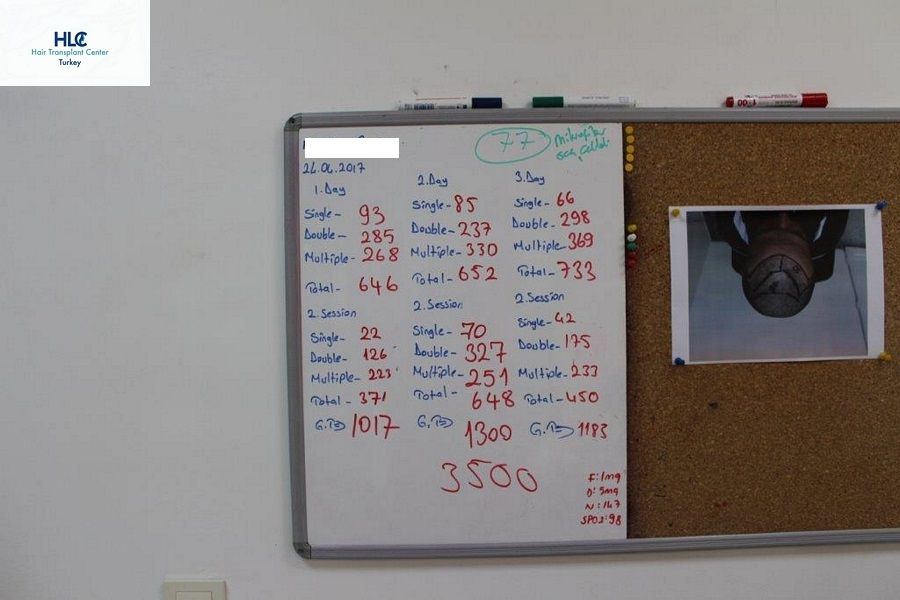 HLC
Hair Transplant Center
Turkey
77
26.04.2017
1.Day
Single- 93
Double- 285
Multiple- 268
Total- 646
2.Session
Single- 22
Double- 126
Multiple- 223
Total- 371
G.T 1017
2.Day
Single- 85
Double- 237
Multiple- 330
Total- 652
2.Session
Single- 70
Double- 327
Multiple- 251
Total- 648
G.T 1300
3.Day
Single- 66
Double- 298
Multiple- 369
Total- 733
2.Session
Single- 42
Double- 175
Multiple- 233
Total- 450
G.T 1183
3500
F:1mg
D:5mg
N:147
SPO2:98
100